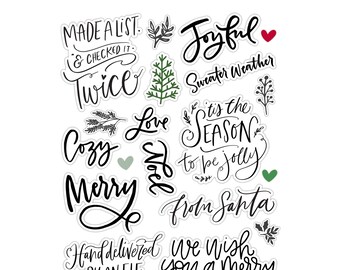 MADE A LIST
& CHECKED IT
Twice
Joyful
Sweater Weather
'tis the
SEASON
to be jolly
Love
Cozy
Noel
Merry
from Santa
Hand delivered
we wish
you a merry